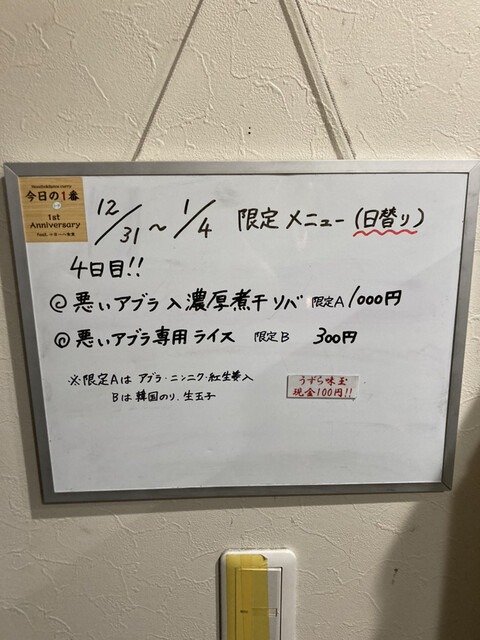 Noodle&Spice curry
今日の1番
1st
Anniversary
12/31～1/4 限定メニュー(日替り)
4日目!!
◎悪いアブラ入濃厚煮干ソバ 限定A 1000円
◎悪いアブラ専用ライス 限定B 300円
※限定Aは アブラ・ニンニク・紅生姜入
Bは韓国のり、生玉子
うずら味玉
現金100円!!